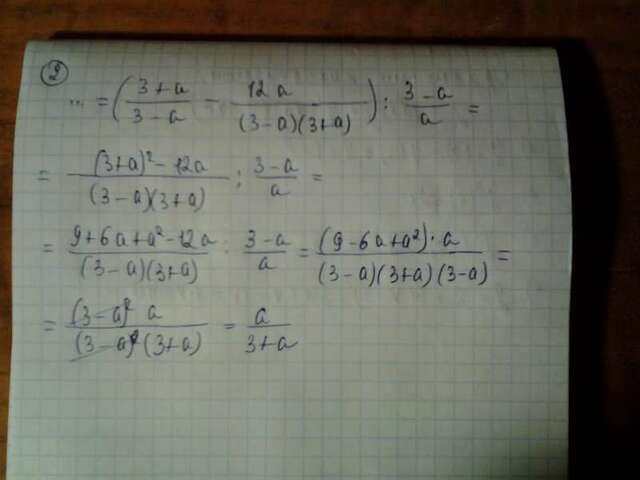 2
... = ( (3+a)/(3-a) - 12a/((3-a)(3+a)) ) : (3-a)/a =
= ((3+a)²-12a)/((3-a)(3+a)) : (3-a)/a =
= (9+6a+a²-12a)/((3-a)(3+a)) : (3-a)/a = ((9-6a+a²)·a)/((3-a)(3+a)(3-a)) =
= ((3-a)² a)/((3-a)²(3+a)) = a/(3+a)